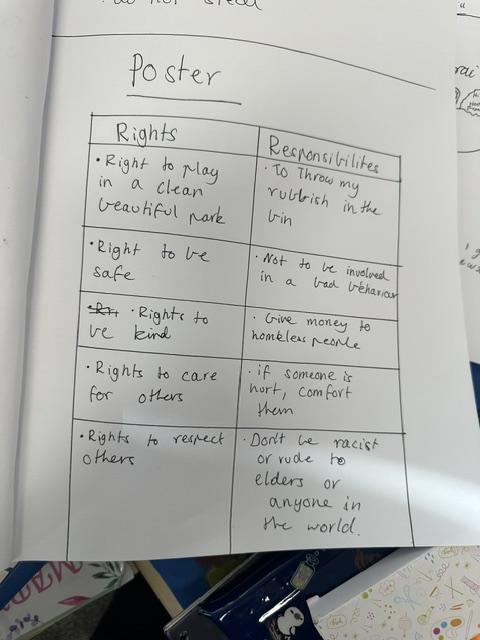 do not steal
Poster
Rights
Responsibilites
• Right to play
in a clean
beautiful park
• To throw my
rubbish in the
bin
• Right to be
safe
• Not to be involved
in a bad behaviour
• Rights to
be kind
• Give money to
homeless people
• Rights to care
for others
• if someone is
hurt, comfort
them
• Rights to respect
others
• Don't be racist
or rude to
elders or
anyone in
the world.